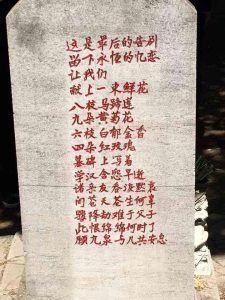 这是最后的告别
留下永恒的忆恋
让我们
献上一束鲜花
八枝马蹄莲
九朵黄菊花
六枝白郁金香
四朵红玫瑰
墓碑上写着
学汉含怨早逝
诸亲友吞泪默哀
问苍天苍生何辜
罪降劫难于父子
此恨绵绵何时了
愿九泉与儿共安息